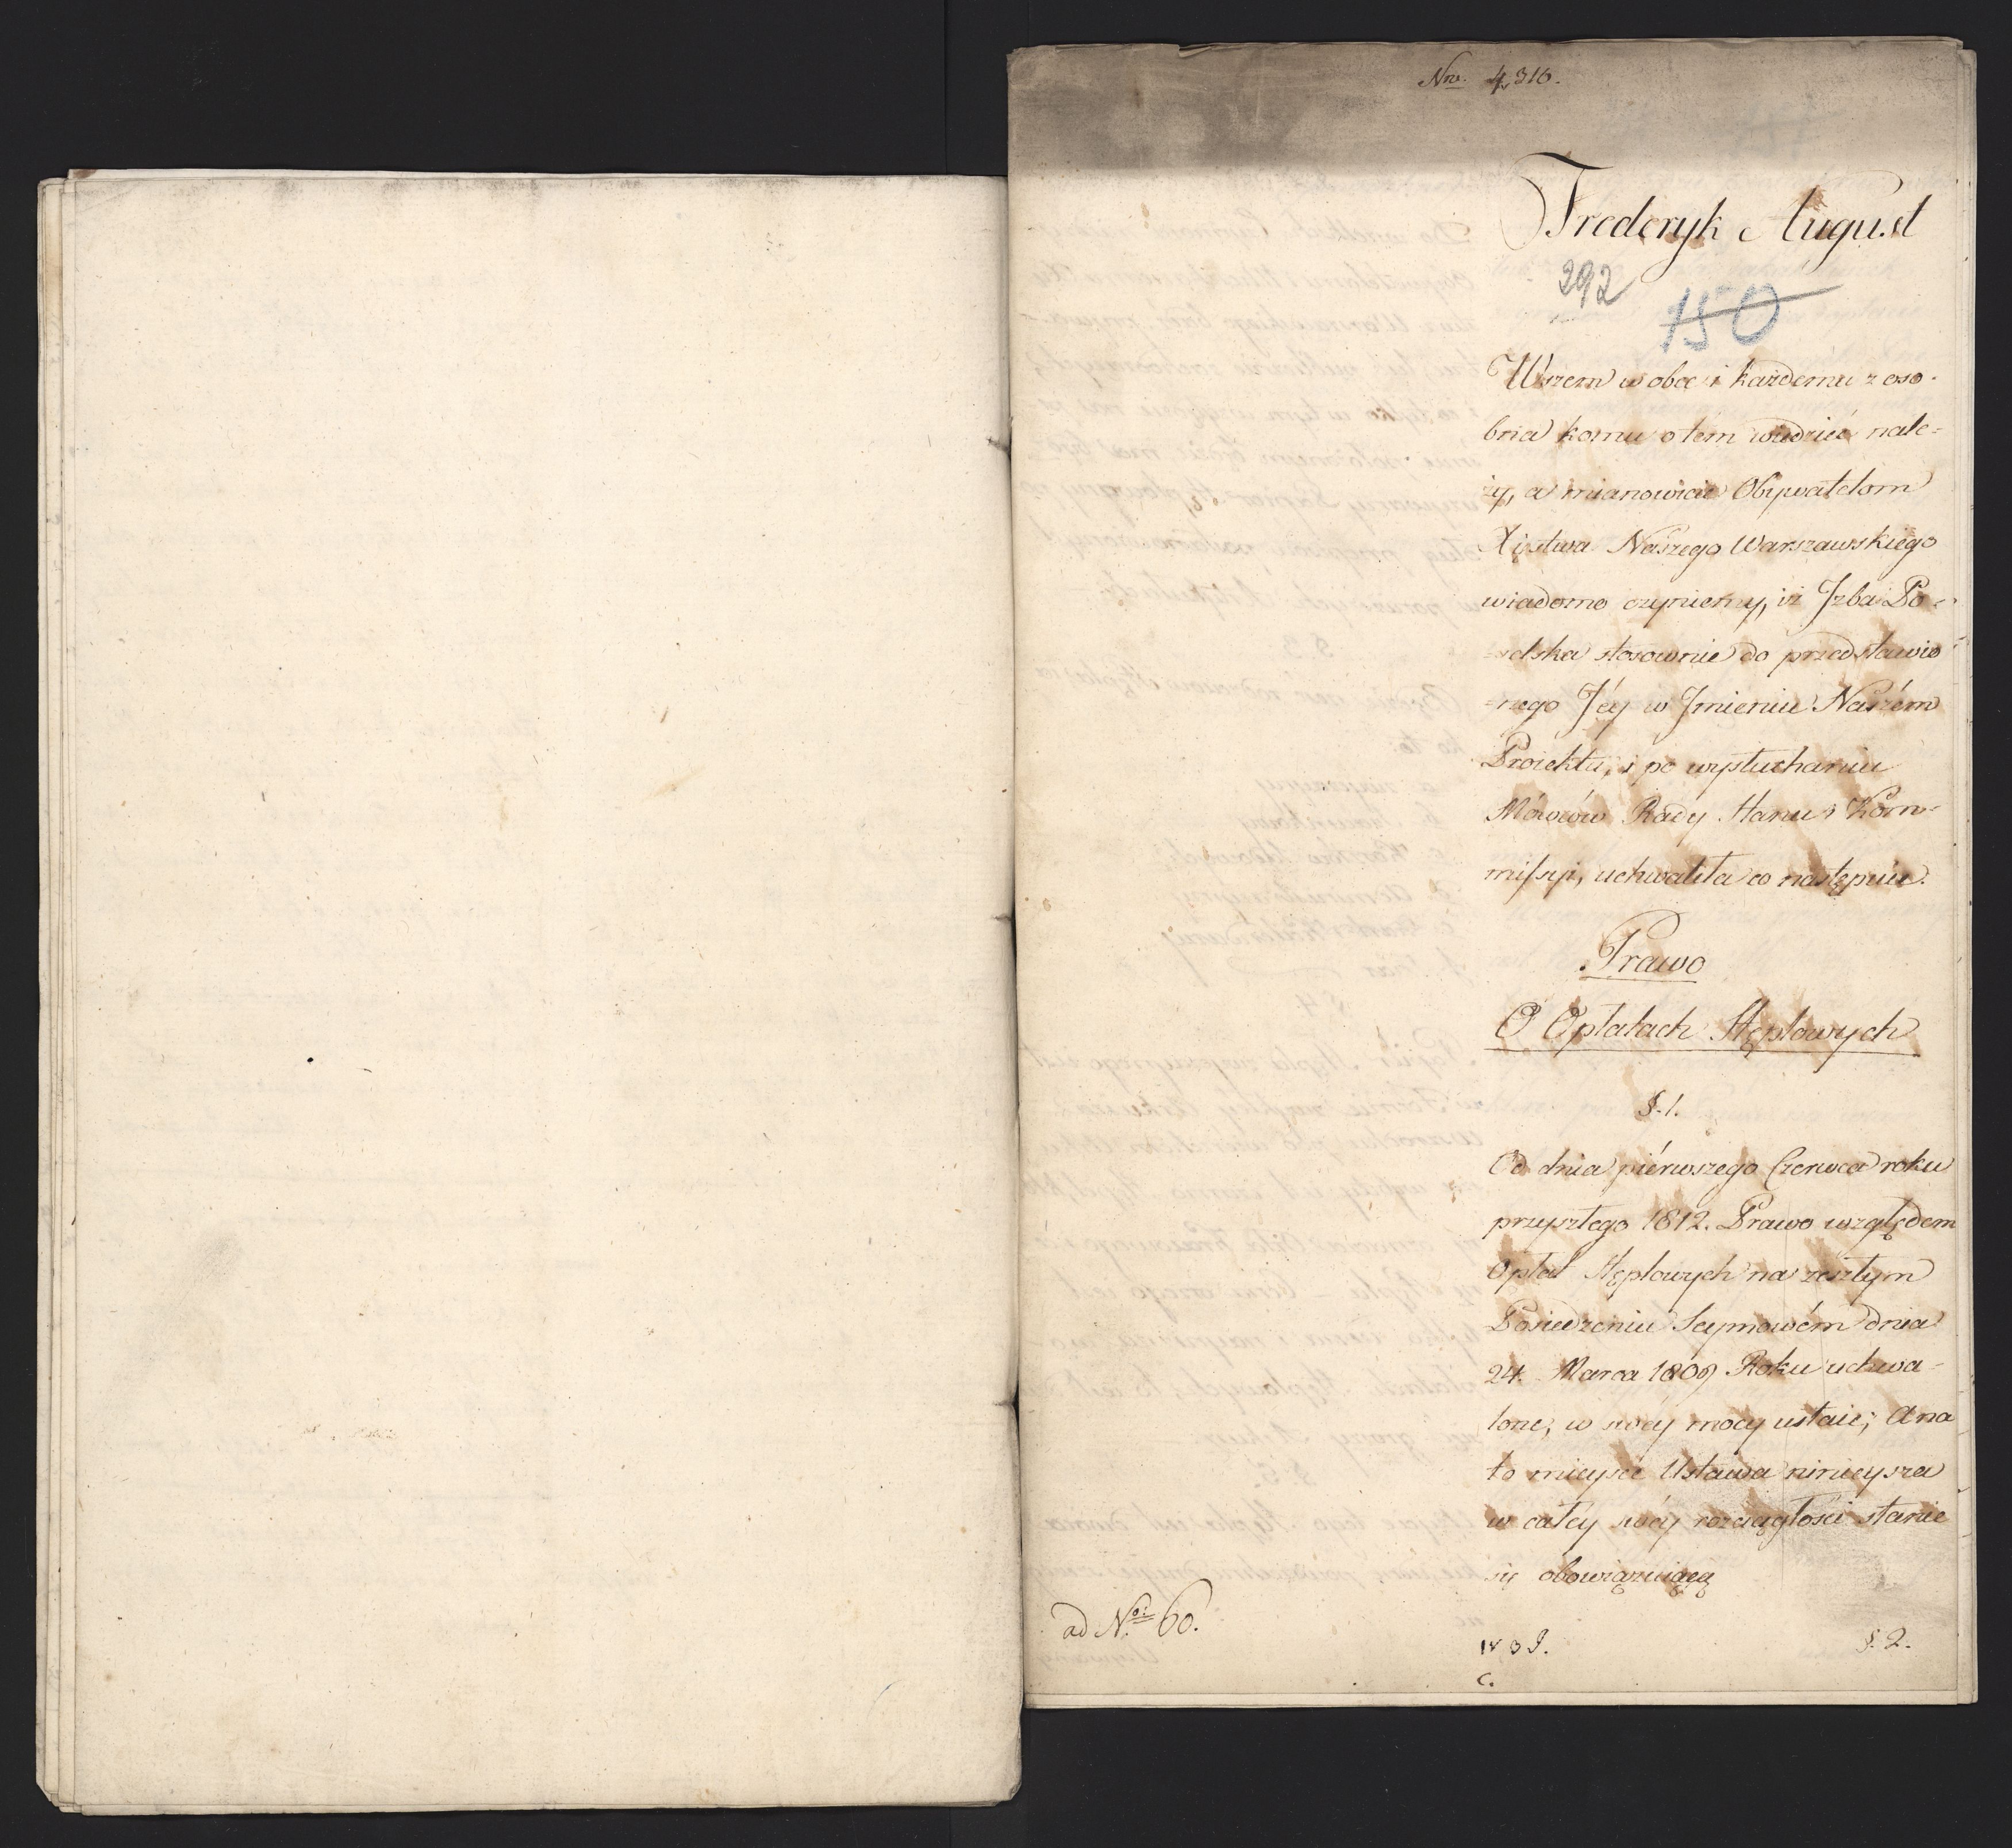 Nro. 4,316.
Frederyk August
292
150
Wszem w obec i każdemu z oso-
bna komu o tém wiedzieć nale-
ży, a mianowicie Obywatelom
Xięstwa Naszego Warszawskiego
wiadomo czyniemy, iż Izba Po-
-selska stosownie do przedstawio-
-nego Jéy w Jmieniu Naszém
Proiektu, i po wysłuchaniu
Mówców Rady Stanu i Kom-
missyi, uchwaliła co następuie.
Prawo
O Opłatach Stęplowych
§. 1.
Od dnia piérwszego Czerwca roku
przyszłego 1812. Prawo względem
Opłat Stęplowych na zeszłym
Posiedzeniu Seymowém dnia
24. Marca 1809 Roku uchwa-
lone, w swéy mocy ustaie; a na
to mieysce Ustawa ninieysza
w całéy swéy rozciągłości stanie
się obowiązuiącą
ad No: 60.
§. 2.
C.